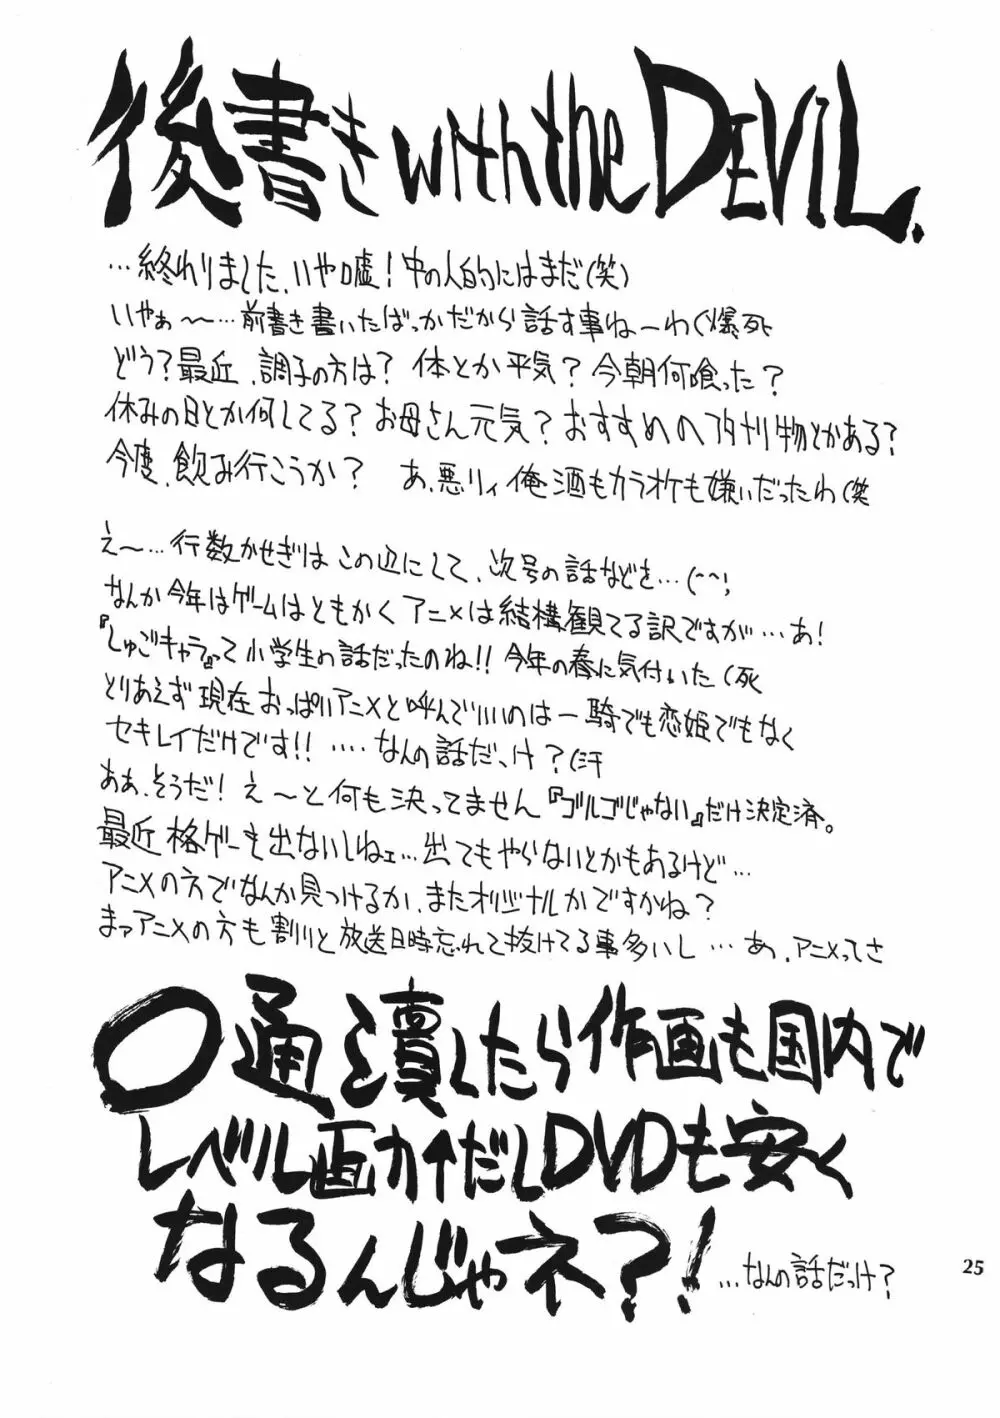 後書き with the DEVIL.
…終わりました、いや嘘！中の人的にはまだ(笑)
いやぁ～…前書き書いたばっかだから話す事ねーわ(爆死
どう？最近、調子の方は？ 体とか平気？今朝何喰った？
休みの日とか何してる？お母さん元気？おすすめのアタリ物とかある？
今度、飲み行こうか？ あ、悪リィ俺酒もカラオケも嫌いだったわ(笑
え～…行数かせぎはこの辺にして、次号の話などを…(^^;
なんか今年はゲームはともかくアニメは結構観てる訳ですが…あ！
『しゅごキャラ』って小学生の話だったのね!!今年の春に気付いた(死
とりあえず現在おっぱいアニメと呼んでいいのは一騎でも恋姫でもなく
セキレイだけです!!‥‥なんの話だっけ？(汗
ああ、そうだ！え～と何も決ってません『ゴルゴじゃない』だけ決定済。
最近格ゲーも出ないしねェ…出てもやらないとかもあるけど…
アニメの方でなんか見つけるか、またオリジナルかですかね？
まァアニメの方も割りと放送日時忘れて抜けてる事多いし…あ、アニメってさ
〇通潰したら作画も国内で
レベル画力↑だしDVDも安く
なるんじゃネ?!
…なんの話だっけ？
25